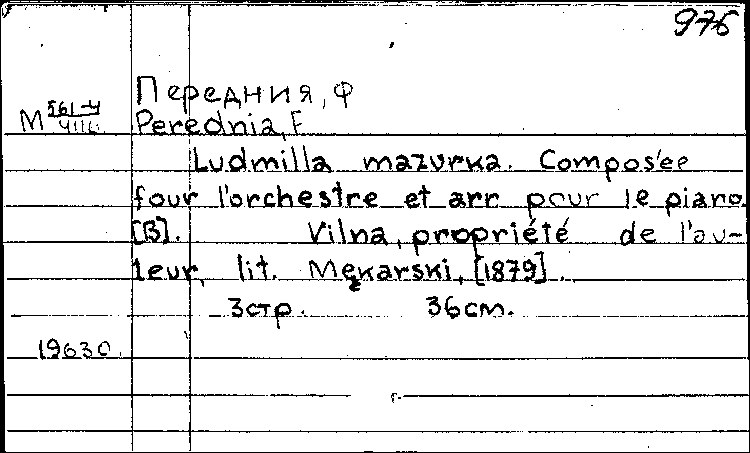 976
Передния, Ф
М 561-4/4116 Perednia, F
Ludmilla mazurka. Composée
four l'orchestre et arr pour le piano
[B]. Vilna, propriété de l'au-
teur, lit. Mękarski, [1879].
3стр. 36см.
19630.